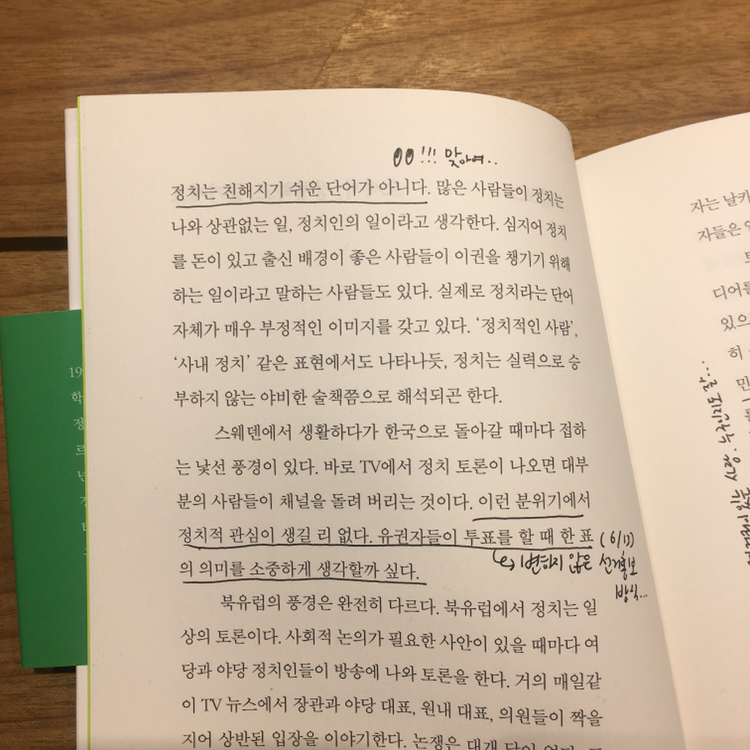 OO!!! 맞아여..
정치는 친해지기 쉬운 단어가 아니다. 많은 사람들이 정치는
나와 상관없는 일, 정치인의 일이라고 생각한다. 심지어 정치
를 돈이 있고 출신 배경이 좋은 사람들이 이권을 챙기기 위해
하는 일이라고 말하는 사람들도 있다. 실제로 정치라는 단어
자체가 매우 부정적인 이미지를 갖고 있다. ‘정치적인 사람’,
‘사내 정치’ 같은 표현에서도 나타나듯, 정치는 실력으로 승
부하지 않는 야비한 술책쯤으로 해석되곤 한다.
스웨덴에서 생활하다가 한국으로 돌아갈 때마다 접하
는 낯선 풍경이 있다. 바로 TV에서 정치 토론이 나오면 대부
분의 사람들이 채널을 돌려 버리는 것이다. 이런 분위기에서
정치적 관심이 생길 리 없다. 유권자들이 투표를 할 때 한 표
의 의미를 소중하게 생각할까 싶다.
(6/13)
변하지 않은 선거홍보
방식...
북유럽의 풍경은 완전히 다르다. 북유럽에서 정치는 일
상의 토론이다. 사회적 논의가 필요한 사안이 있을 때마다 여
당과 야당 정치인들이 방송에 나와 토론을 한다. 거의 매일같
이 TV 뉴스에서 장관과 야당 대표, 원내 대표, 의원들이 짝을
지어 상반된 입장을 이야기한다. 논쟁은 대개
19
학
정
르
년
자는 날카
자들은
디어를
있으
히
민